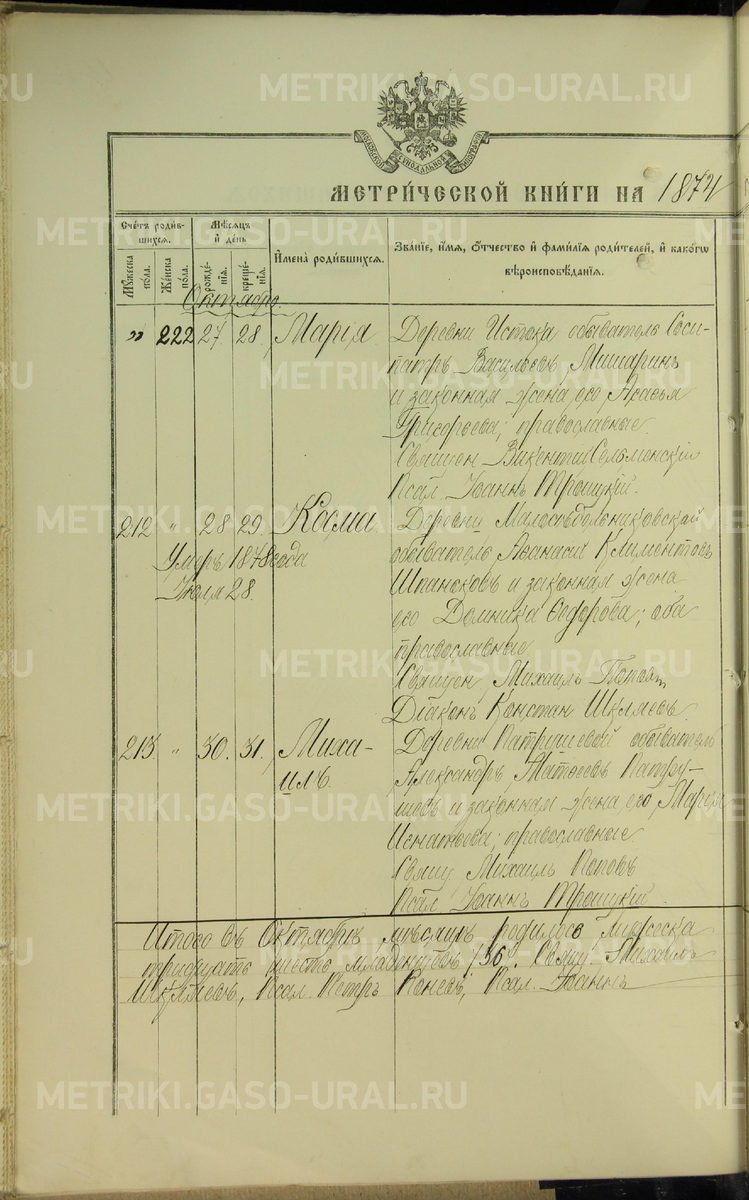 METRIKI.GASO-URAL.RU
МЕТРИ́ЧЕСКОЙ КНИ́ГИ НА 1874
Сче́тъ роди́в-
шихся.
Мѣ́сяцъ
и҆ де́нь
Мꙋ́жеска
по́ла.
Же́нска
по́ла.
рожде́-
нїѧ.
креще́-
нїѧ.
И҆мена̀ роди́вшихся.
Зва́нїе, и҆́мѧ, ѻ҆́тчество и҆ фами́лїѧ роди́телей, и҆ како́гѡ
вѣроисповѣ́данїѧ.
Октябрь.
" 222 27 28, Марія
Деревни Истока обыватель Соси-
патръ Васильевъ Мишаринъ
и законная жена его Агафья
Григорьева; православные
Священ Викентій
Псал Іоаннъ Троицкій.
212 " 28 29. Косма
Умеръ 1878 года
Іюля 28.
Деревни
обыватель Афанасій Климентовъ
и законная жена
его Домника Ѳедорова; оба
православные
Священ Михаилъ Поповъ
Діаконъ Констан Шкляевъ
213. " 30. 31, Миха-
илъ.
Деревни Патрушевой обыватель
Александръ Матѳеевъ Патру-
шевъ и законная жена его Марія
Игнатьева; православные
Свящ Михаилъ Поповъ
Псал Іоаннъ Троицкій.
Итого въ Октябрѣ мѣсяцѣ родилось мужеска
тридцать шесть младенцевъ /36/. Свящ. Михаилъ
Псал. Петръ Коневъ, Псал. Іоаннъ